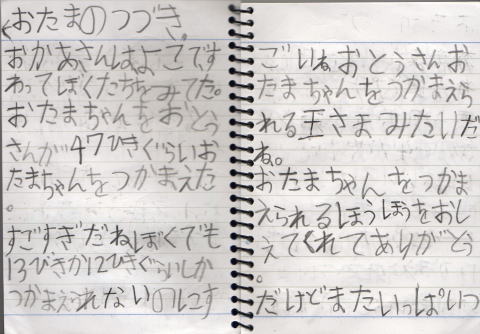 おたまのつづき。
おかあさんはよこです
わってぼくたちをみてた。
おたまちゃんをおとう
さんが47ひきぐらいお
たまちゃんをつかまえた
。
すごすぎだねぼくでも
13びきか12ひきぐらいしか
つかまえられないのにす
ごいねおとうさんお
たまちゃんをつかまえら
れる王さまみたいだ
ね。
おたまちゃんをつかま
えられるほうほうをおし
えてくれてありがとう
。
だけどまたいっぱいつ